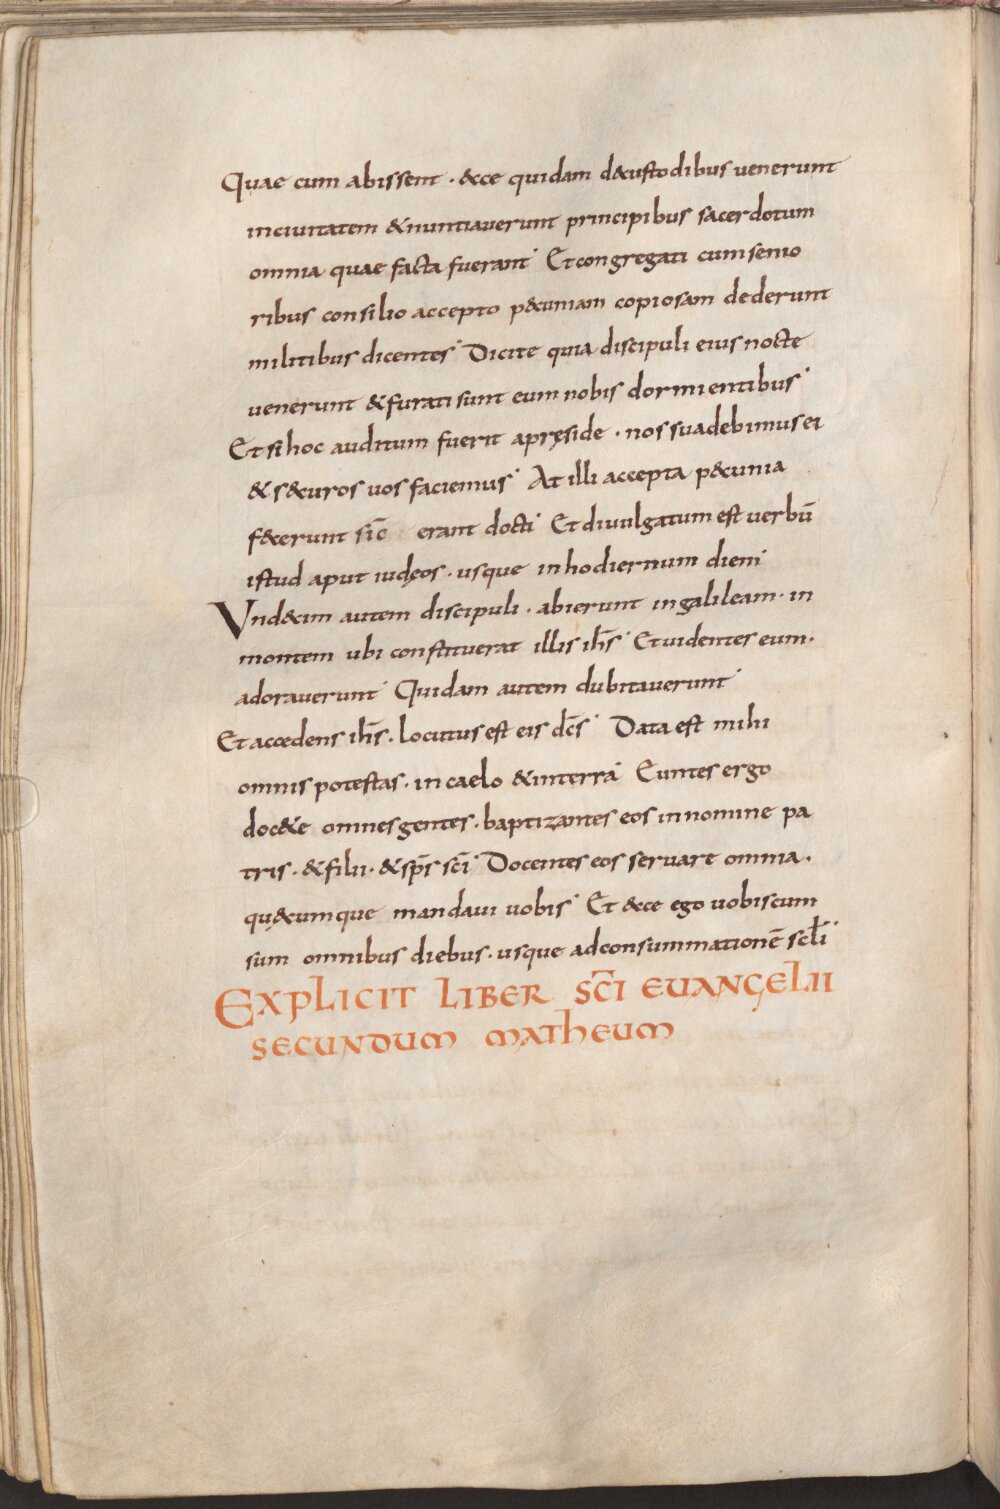 Quae cum abissent · &cce quidam d&custodibus venerunt
inciuitatem &nuntiaverunt principibus sacerdotum
omnia quae facta fuerant· Etcongregati cumsenio
ribus consilio accepto p&cuniam copiosam dederunt
militibus dicentes· Dicite quia discipuli eius nocte
venerunt &furatisunt eum nobis dormientibus·
Etsihoc auditum fuerit apręside · nos suadebimus ei
&s&curos vos faciemus· At illi accepta p&cunia
f&cerunt sic̄ erant docti· Et divulgatum est verbū
istud aput iudęos · usque inhodiernum diem·
Vnd&cim autem discipuli · abierunt ingalileam · in
montem ubi constituerat illis ih̄s· Etvidentes eum ·
adoraverunt· Quidam autem dubitaverunt·
Et accedens ih̄s · locutus est eis dc̄s· Data est mihi
omnis potestas · incaelo &interra· Euntes ergo
doc&e omnes gentes · baptizantes eos innomine pa
tris · &filii · &sp̄s sc̄i· Docentes eos servare omnia ·
qu&cumque mandavi vobis· Et &cce ego vobiscum
sum omnibus diebus · usque adconsummationē scl̄i·
EXPLICIT LIBER SC̄I EUANGELII
SECUNDUM MATHEUM